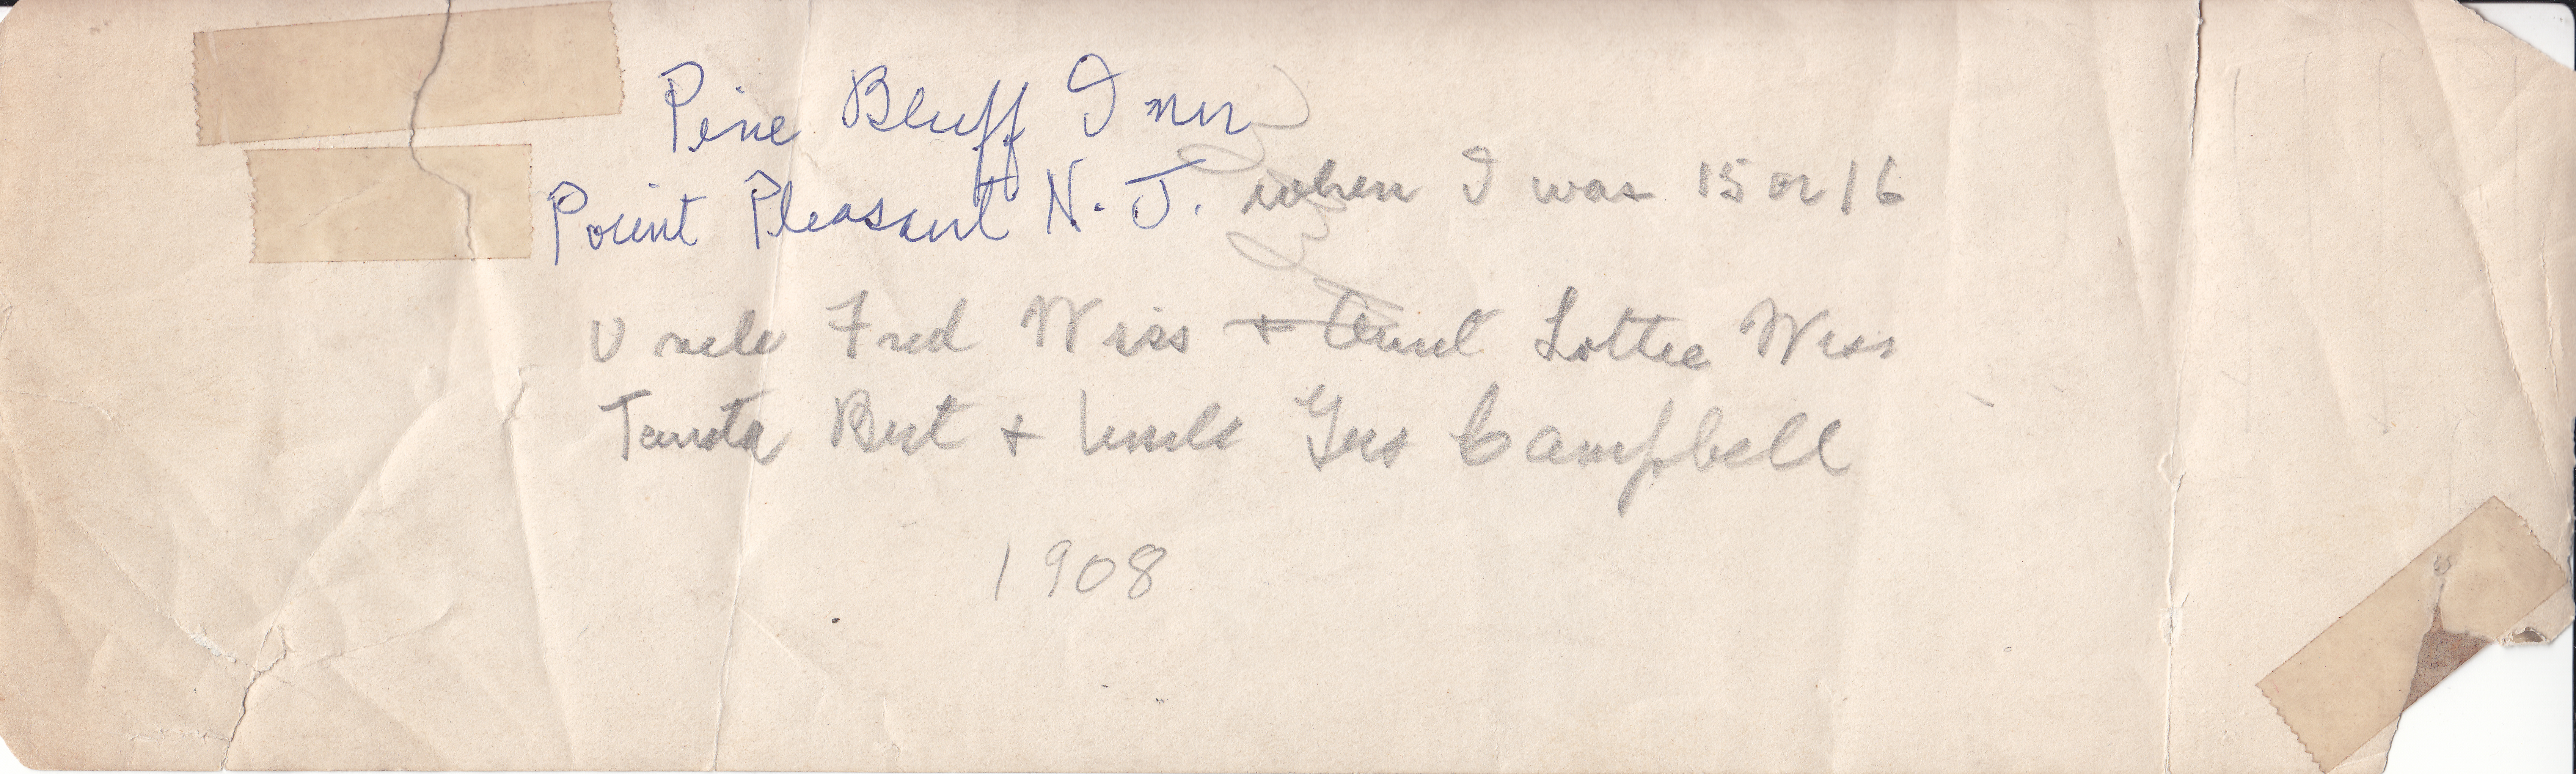 Pine Bluff Inn
Point Pleasant N. J. when I was 15 or 16
Uncle Fred Wiss + Aunt Lottie Wiss
Tanta Bert + Uncle Gus Campbell
1908